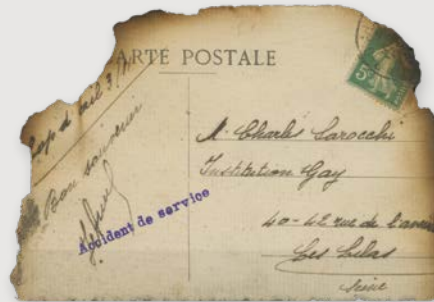 ARTE POSTALE
5
Bon souvenir
Accident de service
M. Charles Sarocchi
Institution Gay
40-42 rue de l'aven
Les Lilas
Seine